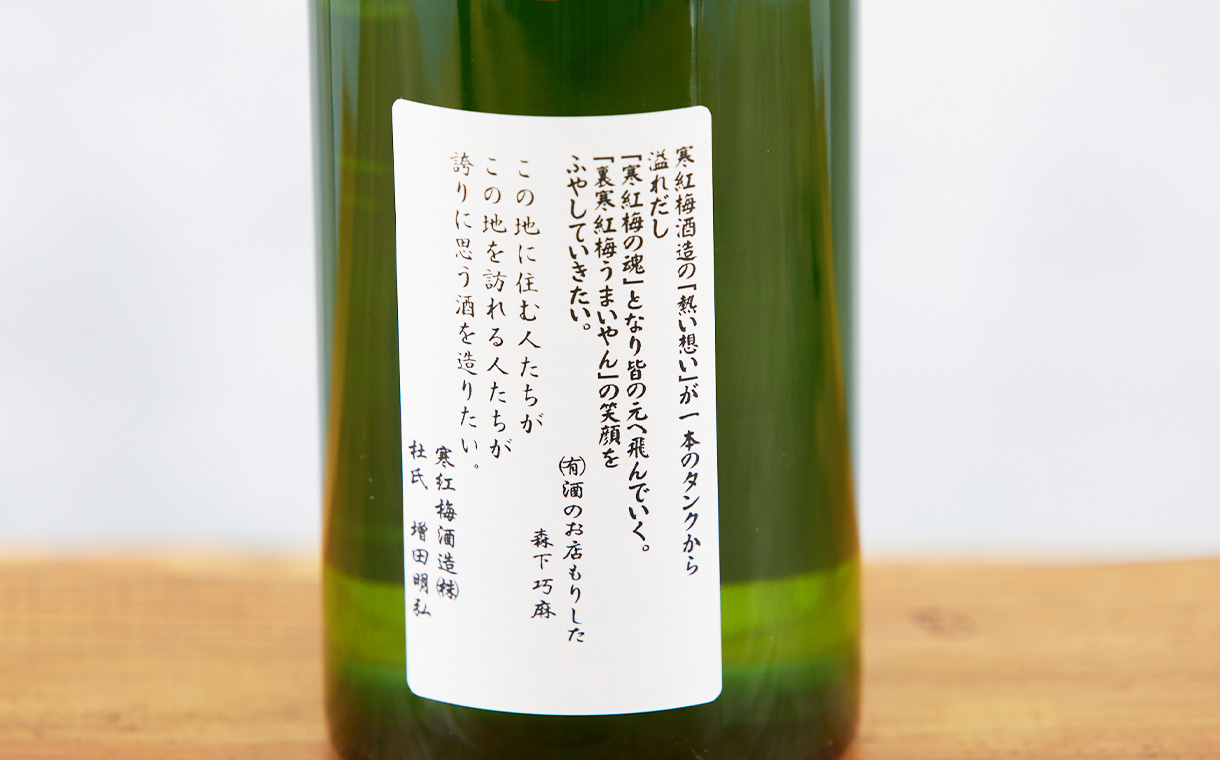 寒紅梅酒造の「熱い想い」が一本のタンクから
溢れだし
「寒紅梅の魂」となり皆の元へ飛んでいく。
「裏寒紅梅うまいやん」の笑顔を
ふやしていきたい。
㈲酒のお店もりした
森下巧麻
この地に住む人たちが
この地を訪れる人たちが
誇りに思う酒を造りたい。
寒紅梅酒造㈱
杜氏 増田明弘